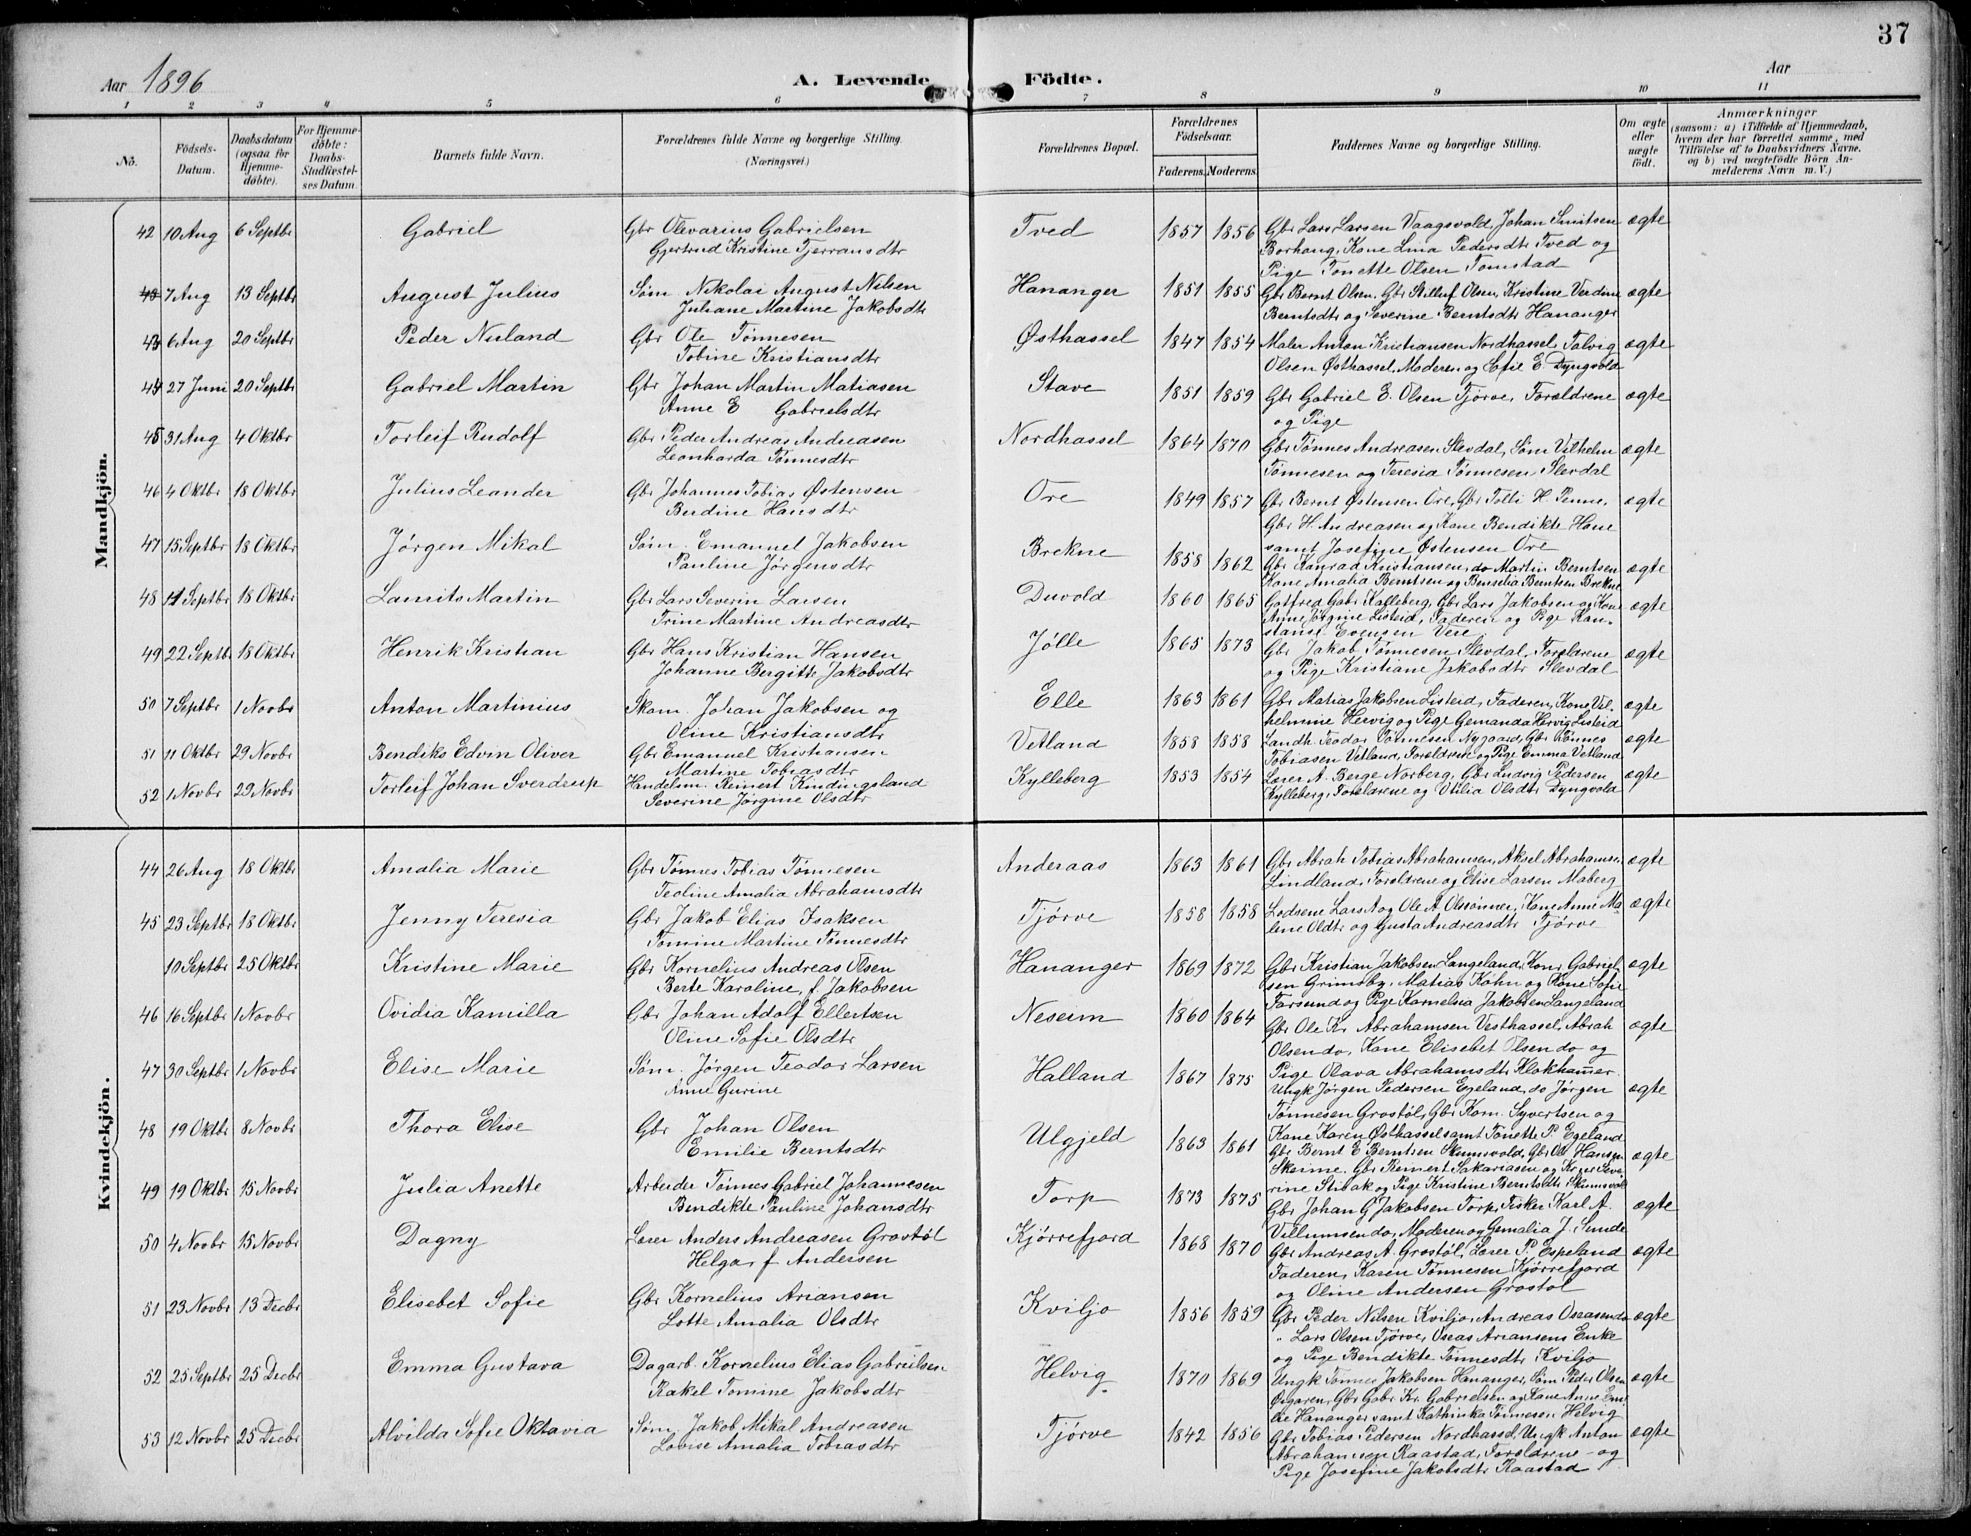 37
Aar 1896 A. Levende Födte. Aar
1 2 3 4 5 6 7 8 9 10 11
Nö.
Födsels-Datum.
Daabsdatum (ogsaa for Hjemme-döbte).
For Hjemme-döbte: Daabs-Stadfæstel-ses Datum
Barnets fulde Navn.
Forældrenes fulde Navne og borgerlige Stilling. (Næringsvei)
Forældrenes Bopæl.
Forældrenes Födselsaar.
Faderens. Moderens.
Faddernes Navne og borgerlige Stilling.
Om ægte eller uægte födt.
Anmærkninger
(saasom: a) i Tilfælde af Hjemmedaab, hvem der har forrettet samme, med Tilföielse af to Daabsvidners Navne. og b) ved uægtefödte Börn An-melderens Navn m. V.)
Mandkjön.
42 10 Aug 6 Septbr Gabriel Gbr Olevarius Gabrielsen Tved 1857 1856 Gbr Lars Larsen Vaagsvold, Johan Smitsen ægte
Gjertrud Kristine Tjerransdtr Borhaug, Kone Lina Pedersdtr Tved og
Pige Tonette Olsen Tomstad
43 7 Aug 13 Septbr August Julius Søm. Nikolai August Nilsen Hananger 1851 1855 Gbr Bernt Olsen, Gbr Olsen, Kristine Verdine ægte
Juliane Martine Jakobsdtr Berntsdtr og Severine Berntsdtr Hananger
43 6 Aug 20 Septbr Peder Nuland Gbr Ole Tønnesen Østhassel 1847 1854 Maler Anton Kristiansen Nordhassel, Talvig ægte
Tobine Kristiansdtr Olsen Østhassel, Moderen og Sofie E. Dyngvold
44 27 Juni 20 Septbr Gabriel Martin Gbr Johan Martin Matiasen Stave 1851 1859 Gbr Gabriel E. Olsen Tjørve, Forældrene ægte
Anne E Gabrielsdtr og Pige
45 31 Aug 4 Oktbr Torleif Rudolf Gbr Peder Andreas Andreasen Nordhassel 1864 1870 Gbr Tønnes Andreasen Slevdal, Søm Vilhelm ægte
Leonharda Tønnesdtr Tønnesen og Teresia Tønnesen Slevdal
46 4 Oktbr 18 Oktbr Julius Leander Gbr Johannes Tobias Østensen Ore 1849 1857 Gbr Bernt Østensen Ore, Gbr Tolli H. Penne, ægte
Berdine Hansdtr Gbr H. Andreasen og Kone Bendikte Hane
samt Josefine Østensen Ore
47 15 Septbr 18 Oktbr Jørgen Mikal Søm. Emanuel Jakobsen Brekne 1858 1862 Gbr Konrad Kristiansen, do Martin Berntsen ægte
Pauline Jørgensdtr Kone Amalia Berntsen og Berntsen Brekne
48 11 Septbr 18 Oktbr Laurits Martin Gbr Lars Severin Larsen Duvold 1860 1865 Gotfred Gabr Kalleberg, Gbr Lars Jakobsen og Kone ægte
Trine Martine Andreasdtr Anne Jørgine Listeid, Faderen og Pige Kon-
stanse Evensen Veie
49 22 Septbr 18 Oktbr Henrik Kristian Gbr Hans Kristian Hansen Jølle 1865 1873 Gbr Jakob Tønnesen Slevdal, Forældrene ægte
Johanne Bergitte Jakobsdtr og Pige Kristiane Jakobsdtr Slevdal
50 7 Septbr 1 Novbr Anton Martinius Skom. Johan Jakobsen og Elle 1863 1861 Gbr Matias Jakobsen Listeid, Faderen, Kone Vil- ægte
Oline Kristiansdtr helmine Hervig og Pige Gemanda Hervig Listeid
51 11 Oktbr 29 Novbr Bendiks Edvin Oliver Gbr Emanuel Kristiansen Vetland 1858 1858 Landh. Teodor Tønnesen Nygaard, Gbr Tønnes ægte
Martine Tobiasdtr Tobiasen Vetland, Forældrene og Pige Emma Vetland
52 1 Novbr 29 Novbr Torleif Johan Sverdrup Handelsm. Reinert Kindingsland Kylleberg 1853 1854 Lærer A. Berge Norberg, Gbr Ludvig Pedersen ægte
Severine Jørgine Olsdtr Kylleberg, Forældrene og Otilia Olsdtr Dyngvold
Kvindekjön.
44 26 Aug 18 Oktbr Amalia Marie Gbr Tønnes Tobias Tønnesen Anderaas 1863 1861 Gbr Abrah Tobias Abrahamsen, Aksel Abrahamsen ægte
Teoline Amalia Abrahamsdtr Lindland, Forældrene og Elise Larsen Maberg
45 23 Septbr 18 Oktbr Jenny Teresia Gbr Jakob Elias Isaksen Tjørve 1858 1858 Lodsene Lars A og Ole A. Olssønner, Kone Anne Ma- ægte
Tomine Martine Tønnesdtr lene Oldtr og Gusta Andreasdtr Tjørve
10 Septbr 25 Oktbr Kristine Marie Gbr Kornelius Andreas Olsen Hananger 1869 1872 Gbr Kristian Jakobsen Langeland, Kone Gabriel- ægte
Berte Karoline, f. Jakobsen sen Grimsby, Matias Køhn og Kone Sofie
Farsund og Pige Kornelia Jakobsen Langeland
46 16 Septbr 1 Novbr Ovidia Kamilla Gbr Johan Adolf Ellertsen Neseim 1860 1864 Gbr Ole Kr Abrahamsen Vesthassel, Abrah ægte
Oline Sofie Olsdtr Olsen do, Kone Elisebet Olsen do og
Pige Olava Abrahamsdtr Klokhammer
47 30 Septbr 1 Novbr Elise Marie Søm. Jørgen Teodor Larsen Halland 1867 1875 Ungk Jørgen Pedersen Egeland, do Jørgen ægte
Anne Gurine Tønnesen Grostøl, Gbr Korn. Syvertsen og
Kone Karen Østhassel samt Tonette P. Egeland
48 19 Oktbr 8 Novbr Thora Elise Gbr Johan Olsen Ulgjeld 1863 1861 Gbr Bernt E Berntsen Skeimsvold, Gbr Ole Hansen ægte
Emilie Berntsdtr Skeime, Gbr Reinert Sakariasen og Kone Seve-
rine Stibak og Pige Kristine Berntsdtr Skeimsvold
49 19 Oktbr 15 Novbr Julia Anette Arbeider Tønnes Gabriel Johannesen Torp 1873 1875 Gbr Johan G Jakobsen Torp, Fisker Karl A. ægte
Bendikte Pauline Johansdtr Villumsen do, Moderen og Gemalia J. Sunde
50 4 Novbr 15 Novbr Dagny Lærer Anders Andreasen Grostøl Kjørrefjord 1868 1870 Gbr Andreas A. Grostøl, Lærer P. Espeland ægte
Helga, f Andersen Faderen, Karen Tønnesen Kjørrefjord
og Oline Andersen Grostøl
51 23 Novbr 13 Decbr Elisebet Sofie Gbr Kornelius Ariansen Kviljo 1856 1859 Gbr Peder Nilsen Kviljo, Andreas ægte
Lotte Amalia Olsdtr " Lars Olsen Tjørve, Oseas Ariansens Enke
og Pige Bendikte Tønnesdtr Kviljo
52 25 Septbr 25 Decbr Emma Gustava Dagarb. Kornelius Elias Gabrielsen Helvig 1870 1869 Ungk Tønnes Jakobsen Hananger, Søm Peder Olsen ægte
Rakel Tomine Jakobsdtr Gbr Gabr. Kr. Gabrielsen og Kone Anne Em-
lie Hananger samt Kathinka Tønnesen Helvig
53 12 Novbr 25 Decbr Alvilda Sofie Oktavia Søm. Jakob Mikal Andreasen Tjørve 1842 1856 Gbr Tobias Pedersen Nordhassel, Ungk Anton ægte
Lovise Amalia Tobiasdtr Abrahamsen Raastad, Forældrene og
Pige Josefine Jakobsdtr Raastad